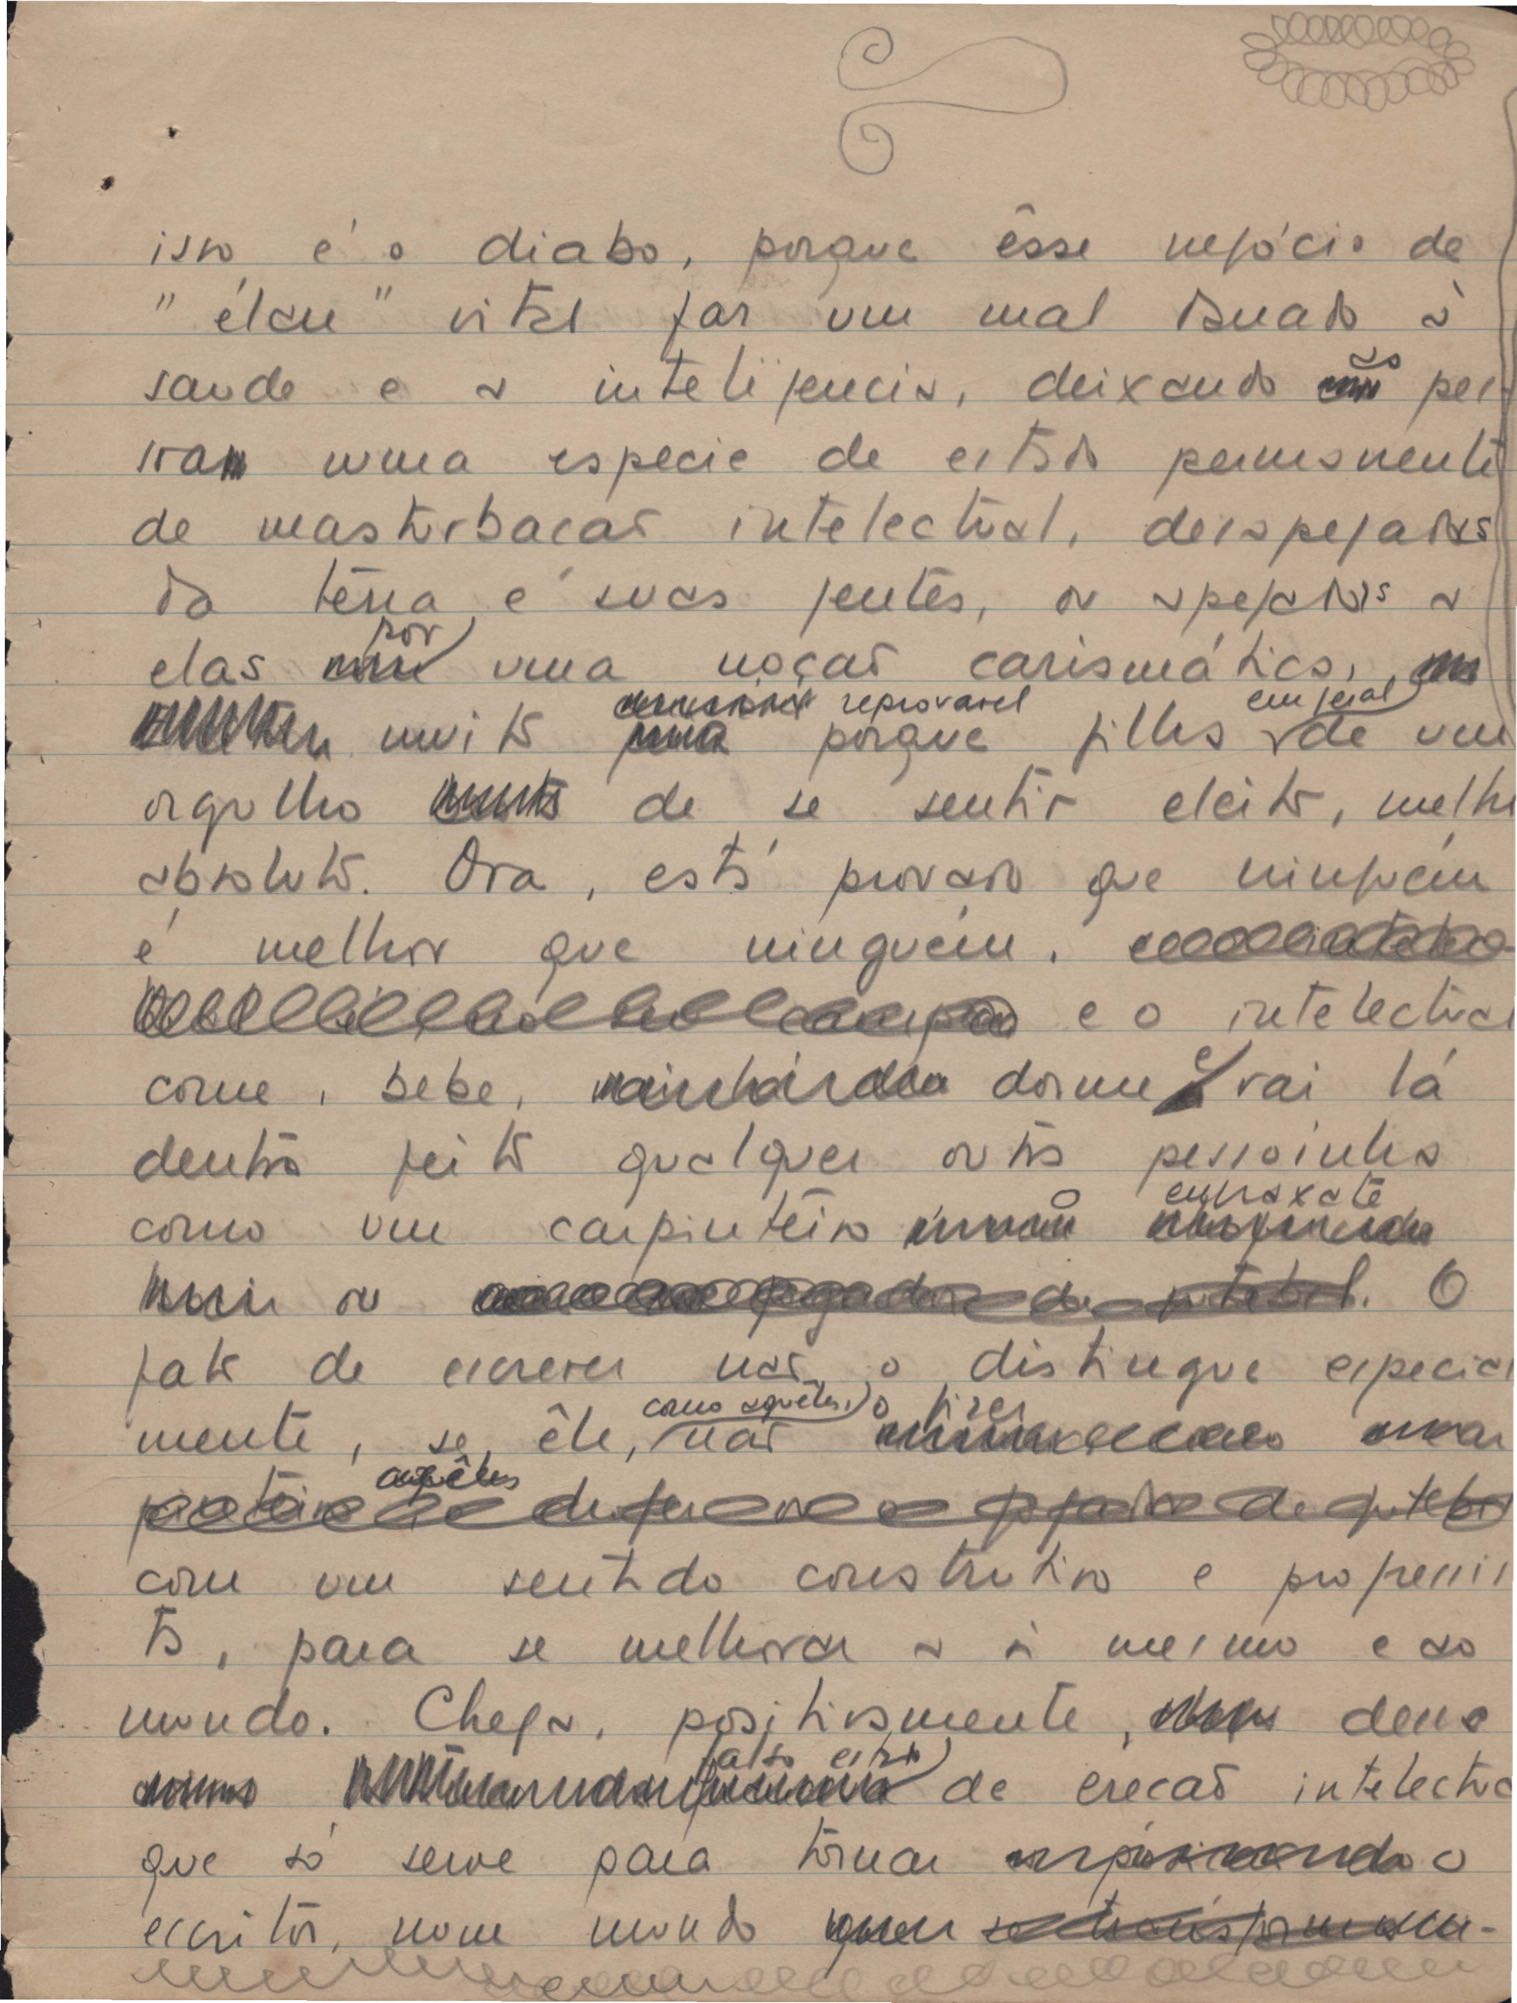 isso é o diabo, porque êsse negócio de
"élan" vital faz um mal danado à
saude e a inteligencia, deixando as pes-
soas numa especie de estado permanente
de masturbacão intelectual, desapegadas
da terra e suas gentes, ou apegados a
elas por uma noção carismática,
muito reprovavel porque filhos em geral de um
orgulho de se sentir eleito, melhor
absoluto. Ora, está provado que ninguém
é melhor que ninguém.
e o intelectual
come, bebe, dorme e vai lá
dentro feito qualquer outra pessoinha
como um carpinteiro engraxate
ou O
fato de escrever não o distingue especial
mente, se, êle, como aquêles, não o fizer
com um sentido construtivo e progressis
ta, para se melhorar a si mesmo e ao
mundo. Chega, positivamente, desse
falso estado de erecão intelectual
que só serve para tornar o
escritor, num mundo